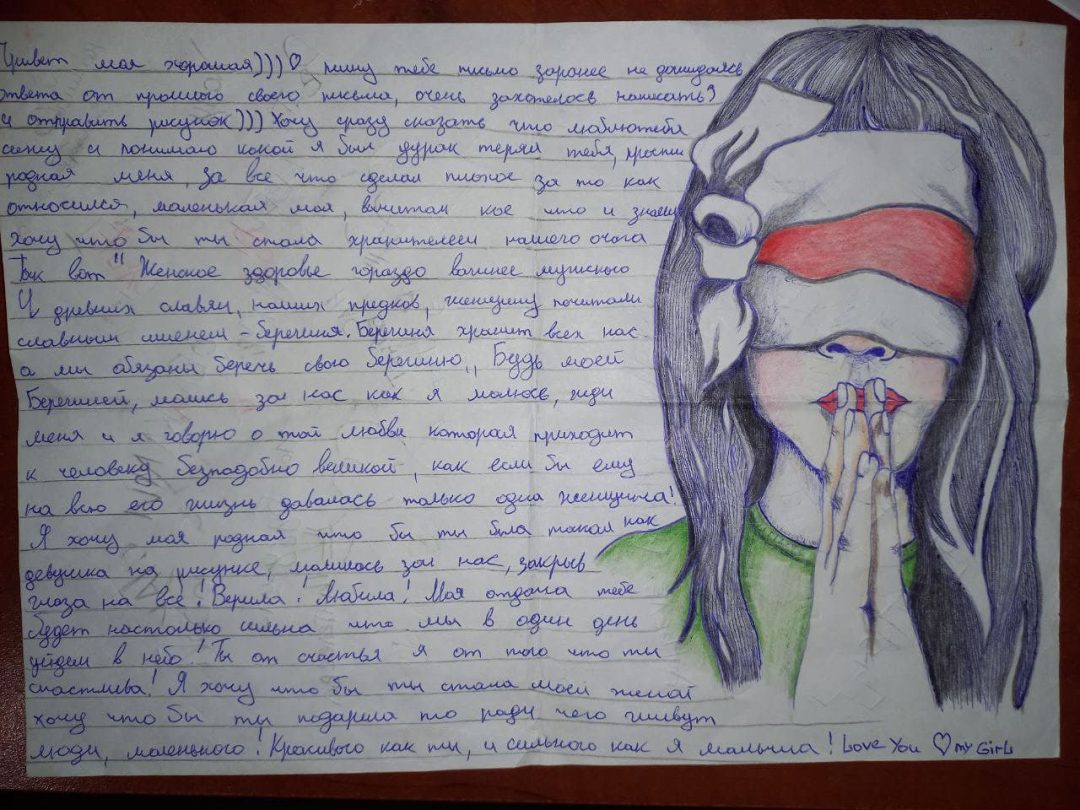 Привет моя хорошая)))♡ пишу тебе письмо заранее не дождаясь
ответа от прошлого своего письма, очень захотелось написать?
и отправить рисунок))) Хочу сразу сказать что люблю тебя
сижу и понимаю какой я был дурак терял тебя, прости
родная меня, за все что сделал плохое за то как
относился, маленькая моя, вычитал кое что и знаешь
Хочу что бы ты стала хранителем нашего очага
Так вот " Женское здоровье гораздо важнее мужского
У древних славян, наших предков, женщину почитали
славным именем - берегиня. Берегиня хранит всех нас
а мы обязаны беречь свою берегиню,, Будь моей
Берегиней, молись за нас как я молюсь, жди
меня и я говорю о той любви которая приходит
к человеку безподобно великой, как если бы ему
на всю его жизнь давалась только одна женщина!
Я хочу моя родная что бы ты была такая как
девушка на рисунке, молилась за нас, закрыв
глаза на все! Верила! Любила! Моя отдача тебе
будет настолько сильна что мы в один день
уйдем в небо! Ты от счастья я от того что ты
счастлива! Я хочу что бы ты стала моей женой
хочу что бы ты подарила то ради чего живут
люди, маленького! Красивого как ты, и сильного как я малыша! Love You ♡ my Girl